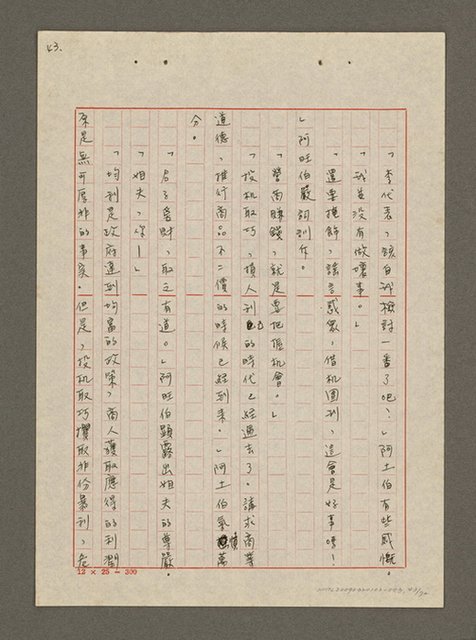 43.
「李代表，該自我檢討一番了吧？」阿土伯有些感慨。
「我並沒有做壞事。」
「還要掩飾，謠言惑衆，借机圖利，這會是好事嗎！
」阿旺伯嚴詞糾斥。
「營商賺錢，就是要把握机會。」
「投机取巧，損人利己的時代已經過去了。講求商業
道德，推行商品不二價的時候已經到來。」阿土伯氣憤萬
分。
「君子愛財，取之有道。」阿旺伯顯露出姐夫的尊嚴。
「姐夫，你！」
「均利是政府達到均富的政策，商人獲取應得的利潤
原是無可厚非的事矣。但是，投机取巧攫取非份暴利，危
12 × 25 — 300